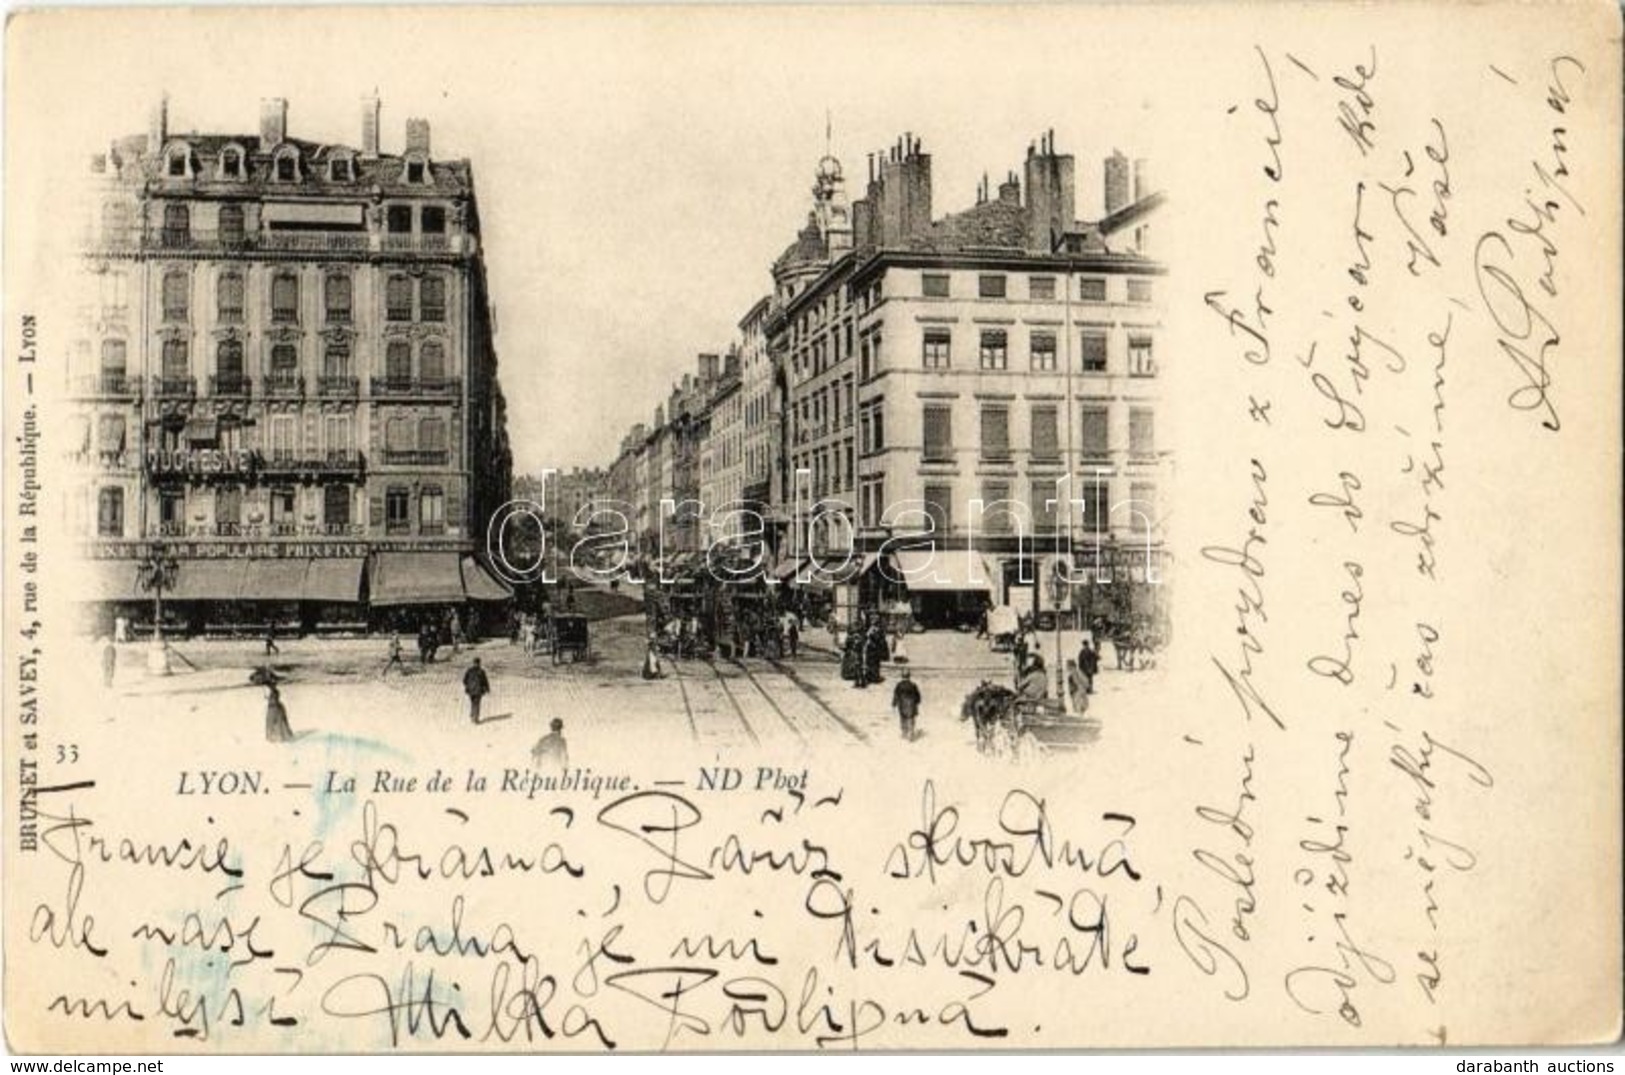 DUCHESNE
EQUIPEMENTS MILITAIRES
FIXE BAZAR POPULAIRE PRIX FIXE
BRUISET et SAVEY, 4, rue de la République. — LYON
33
LYON. — La Rue de la République. — ND Phot
Francie je krásná, Paříž skvostná,
ale naše Praha je mi tisíckráte
milejší Milka Podlipná.
Poslední pozdrav z Francie
odjíždíme dnes do Švýcar kde
se nějaký čas zdržíme, Vaše
A Podlipná
darabanth
darabanth auctions